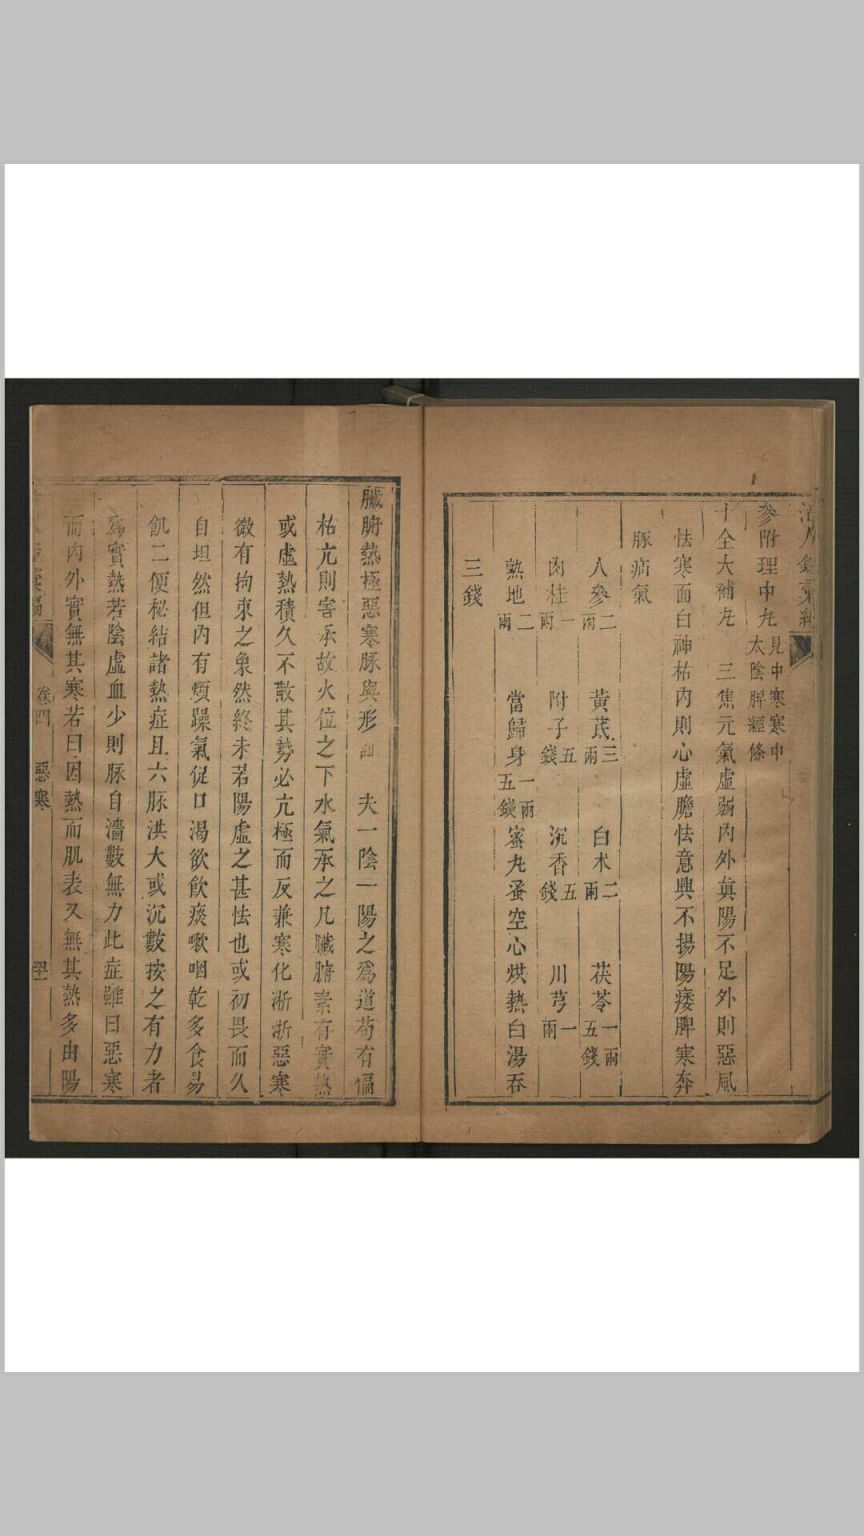 參附理中丸 見中寒寒中太陰脾經條
十全大補丸 三焦元氣虛弱內外真陽不足外則惡風
怯寒面白神枯內則心虛膽怯意興不揚陽痿脾寒奔
豚疝氣
人參二兩 黃芪三兩 白朮二兩 茯苓一兩五錢
肉桂一兩 附子五錢 沉香五錢 川芎一兩
熟地二兩 當歸身一兩五錢 蜜丸蚤空心烘熱白湯吞
三錢
臟腑熱極惡寒脉與形 夫一陰一陽之爲道苟有偏
枯亢則害承故火位之下水氣承之凡臟腑素有實熱
或虛熱積久不散其勢必亢極而反兼寒化淅淅惡寒
微有拘束之象然終未若陽虛之甚怯也或初畏而久
自坦然但內有煩躁氣促口渴欲飲痰嗽咽乾多食易
飢二便秘結諸熱症且六脉洪大或沉數按之有力者
爲實熱若陰虛血少則脉自濇數無力此症雖曰惡寒
而內外實無其寒若曰因熱而肌表又無其熱多由陽
卷四 惡寒